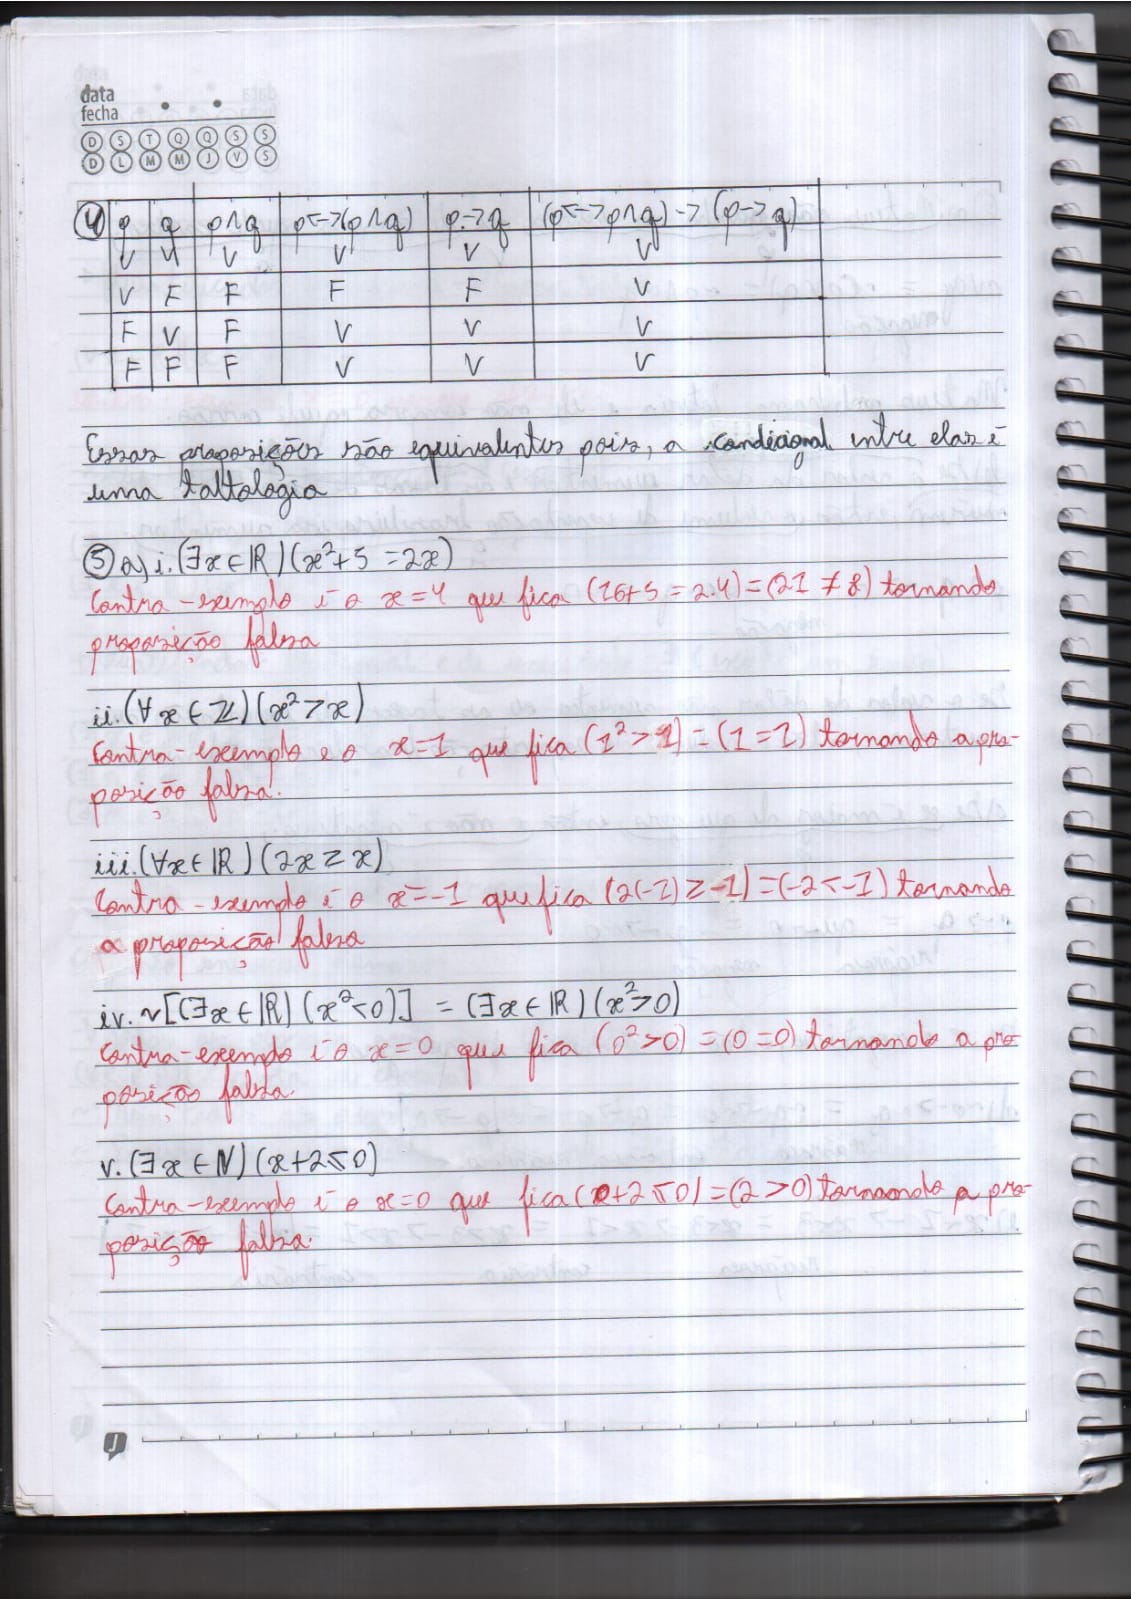 data
fecha
D S T Q Q S S
D L M M J V S
4 p q p∧q p<->(p∧q) p->q (p<->p∧q)->(p->q)
V V V V V V
V F F F F V
F V F V V V
F F F V V V
Essas proposições são equivalentes pois, a condicional entre elas é
uma taltologia
5 a) i. (∃x∈ℝ)(x²+5=2x)
Contra-exemplo é o x=4 que fica (16+5=2.4)=(21≠8) tornando
proposição falsa
ii. (∀x∈ℤ)(x²>x)
Contra-exemplo e o x=1 que fica (1²>1)=(1=1) tornando a pro-
posição falsa.
iii. (∀x∈ℝ)(2x≥x)
Contra-exemplo é o x=-1 que fica (2(-1)≥-1)=(-2<-1) tornando
a proposição falsa
iv. ~[(∃x∈ℝ)(x²<0)] = (∃x∈ℝ)(x²>0)
Contra-exemplo é o x=0 que fica (0²>0)=(0=0) tornando a pro
posição falsa.
v. (∃x∈N)(x+2≤0)
Contra-exemplo é o x=0 que fica (0+2≤0)=(2>0) tornaondo a pro-
posição falsa.
J